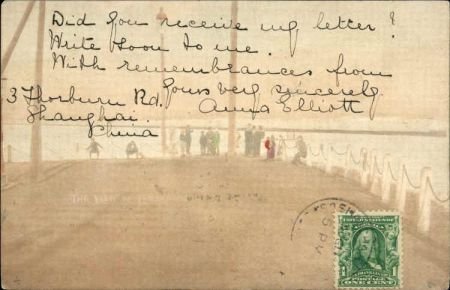 Did you receive my letter?
Write soon to me.
With remembrances from
yours very sincerely
3 Thorburn Rd. Anna Elliott
Shanghai.
China
ONE CENT